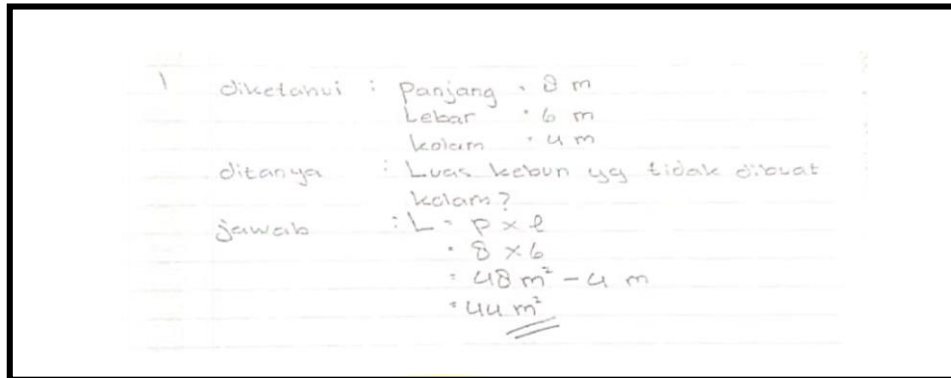 1 diketahui : panjang = 8 m
Lebar = 6 m
kolam = 4 m
ditanya : Luas kebun yg tidak dibuat
kolam?
jawab : L = p x l
= 8 x 6
= 48 m² - 4 m
= 44 m²